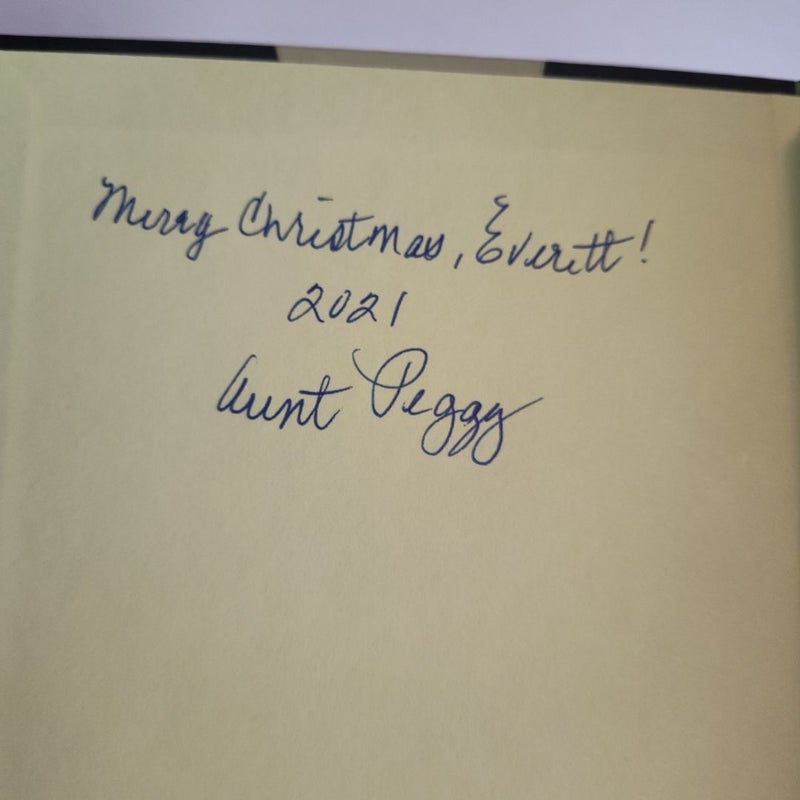 Merry Christmas, Everett!
2021
Aunt Peggy